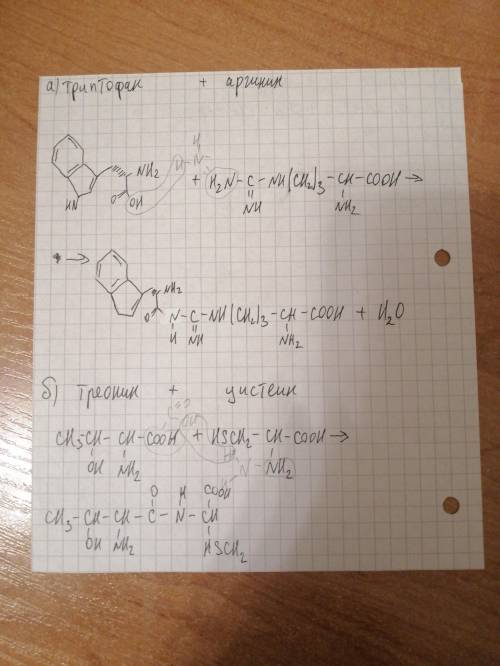 а) триптофан + аргинин
H
NH₂ H-N-
+ H₂N-C-NH(CH₂)₃-CH-COOH→
HN O OH NH NH₂
→ NH₂
O N-C-NH(CH₂)₃-CH-COOH + H₂O
H NH NH₂
б) треонин + цистеин
C=O
OH
CH₃-CH-CH-COOH + HSCH₂-CH-COOH→
OH NH₂ H N- NH₂
O H COOH
CH₃-CH-CH-C-N-CH
OH NH₂ HSCH₂